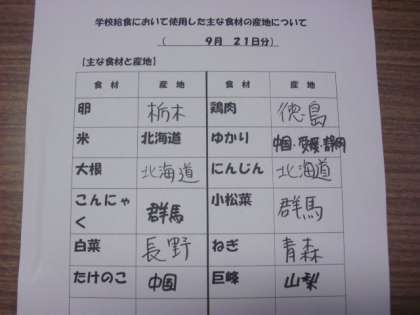 学校給食において使用した主な食材の産地について
（　　　9月　21日分）
【主な食材と産地】
食　材　産　地　食　材　産　地
卵　栃木　鶏肉　徳島
米　北海道　ゆかり　中国・愛媛・静岡
大根　北海道　にんじん　北海道
こんにゃく　群馬　小松菜　群馬
白菜　長野　ねぎ　青森
たけのこ　中国　巨峰　山梨